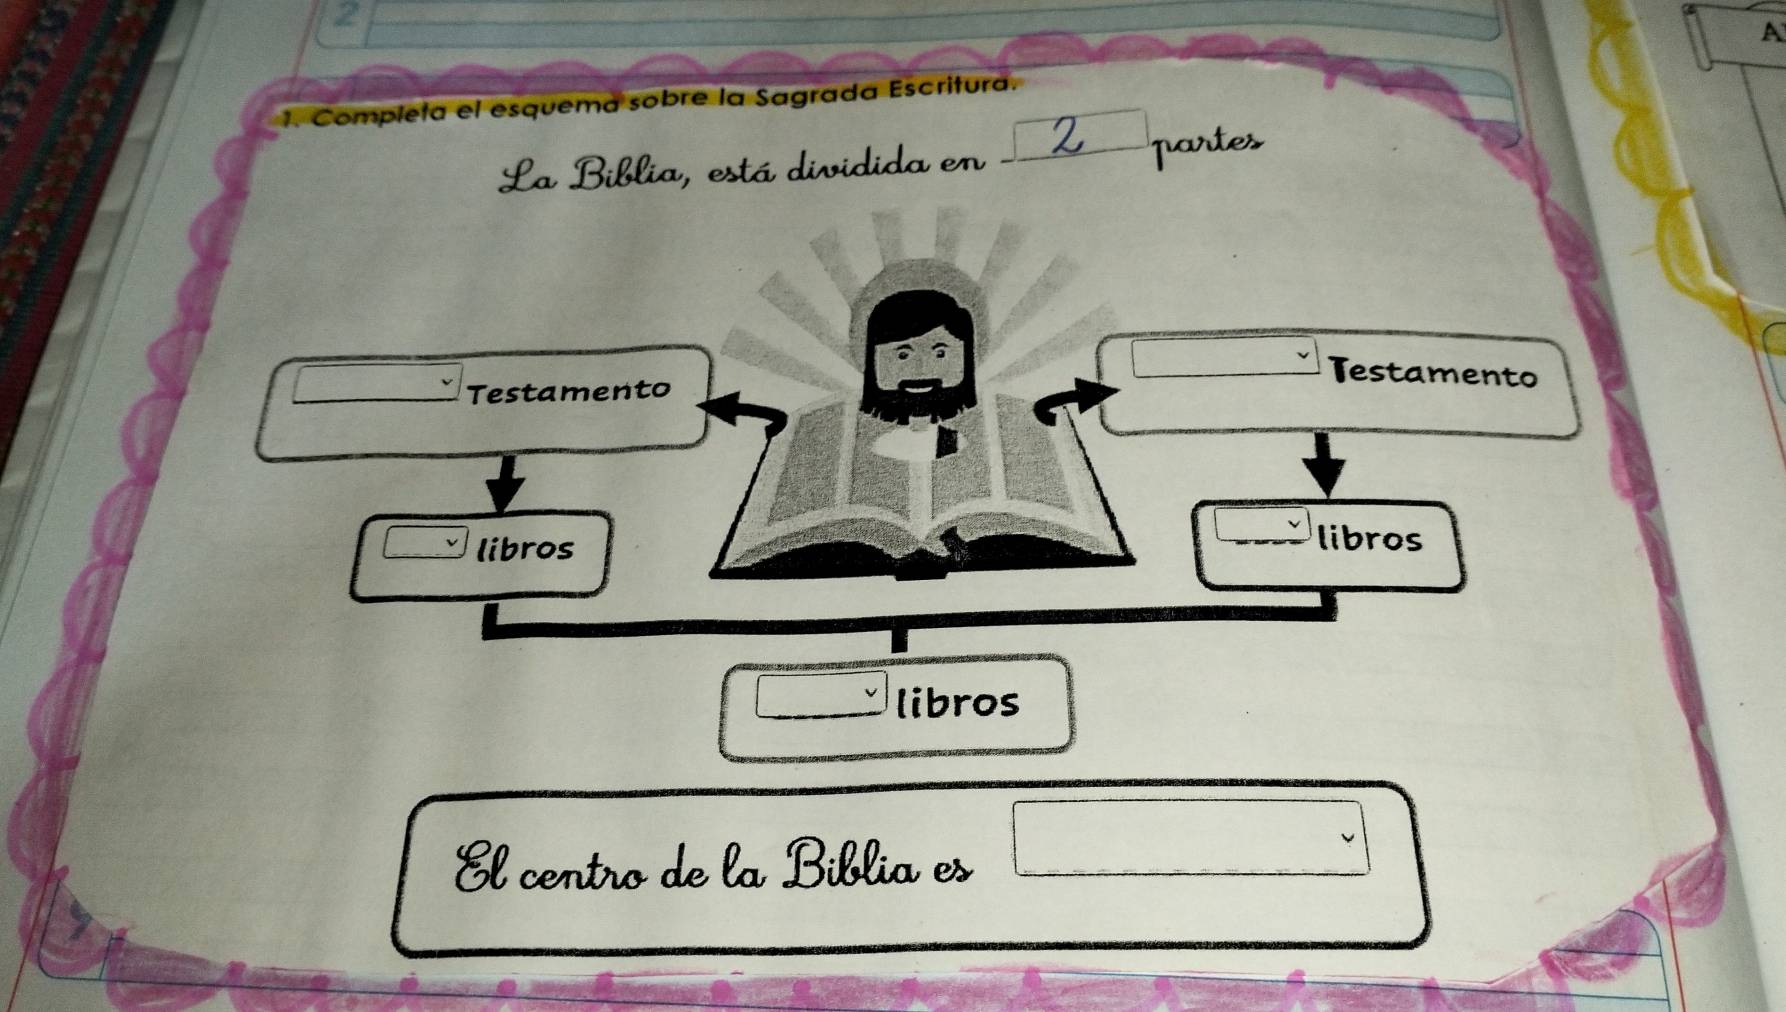 2
A
1. Completa el esquema sobre la Sagrada Escritura.
La Biblia, está dividida en 2 partes
Testamento
Testamento
libros
libros
libros
El centro de la Biblia es